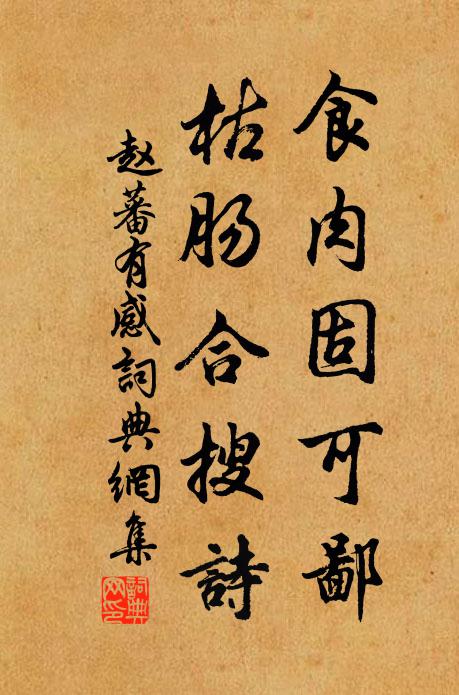 食肉固可鄙
枯肠合搜詩
赵蕃有感詞典網集
詞典
网印